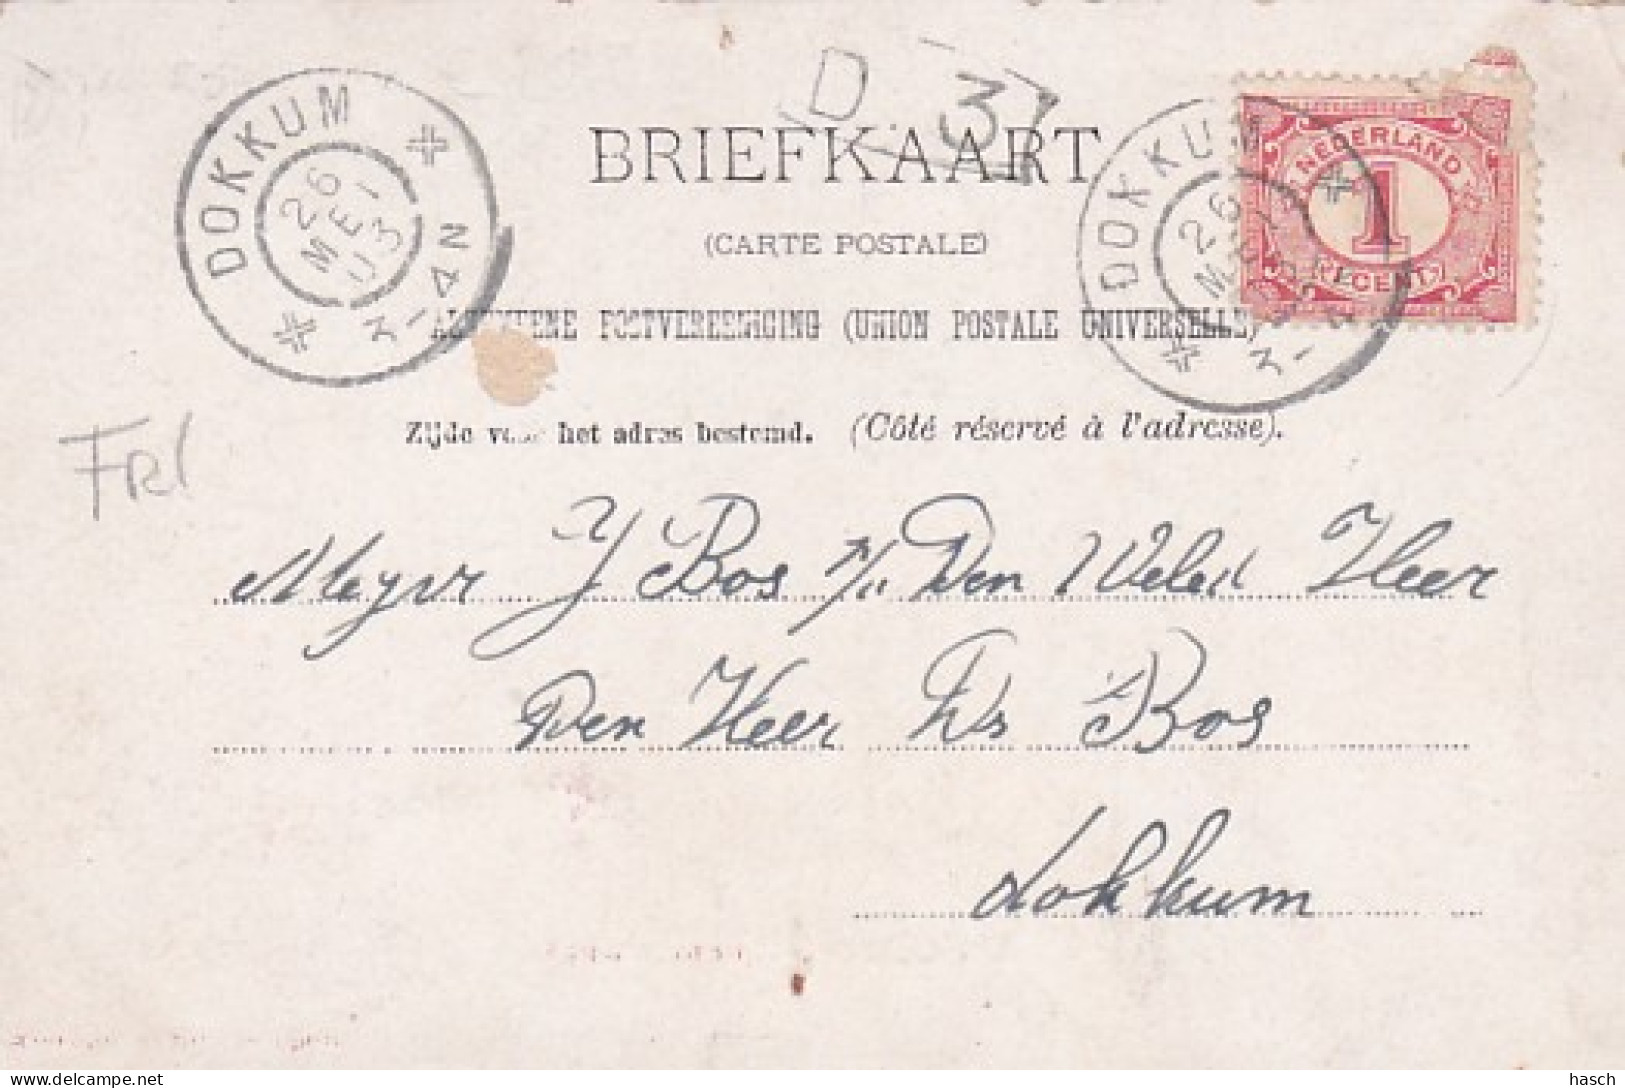 DOKKUM
26
MEI
03
3-4N
D 31
BRIEFKAART
(CARTE POSTALE)
ALGEMEENE POSTVEREENIGING (UNION POSTALE UNIVERSELLE)
Zijde voor het adres bestemd. (Côté réservé à l'adresse).
DOKKUM
26
MEI
3-4N
NEDERLAND
1
CENT
FRL
Mejvr J Bos p/a Den Weled Heer
Den Heer Ds Bos
Dokkum
delcampe.net
hasch